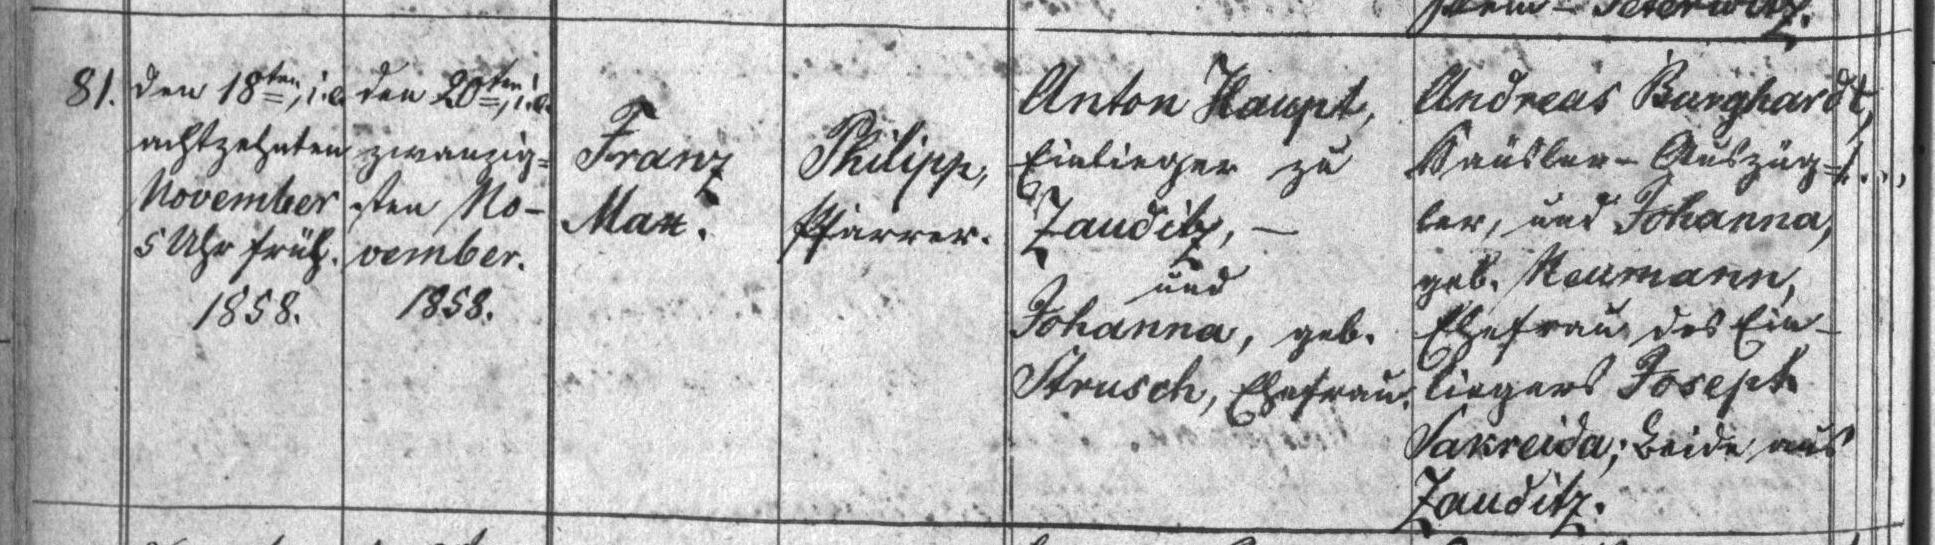 Klein-Peterwitz.
81.
den 18ten, i.e.
achtzehnten
November
5 Uhr früh.
1858.
den 20ten, i.e.
zwanzig=
sten No-
vember.
1858.
Franz
Max.
Philipp,
Pfarrer.
Anton Haupt,
Einlieger zu
Zauditz, —
und
Johanna, geb.
Strusch, Ehefrau.
Andreas Burghardt,
Häusler-Auszüg=
ler, und Johanna,
geb. Neumann,
Ehefrau des Ein-
liegers Joseph
Sakreida; beide aus
Zauditz.